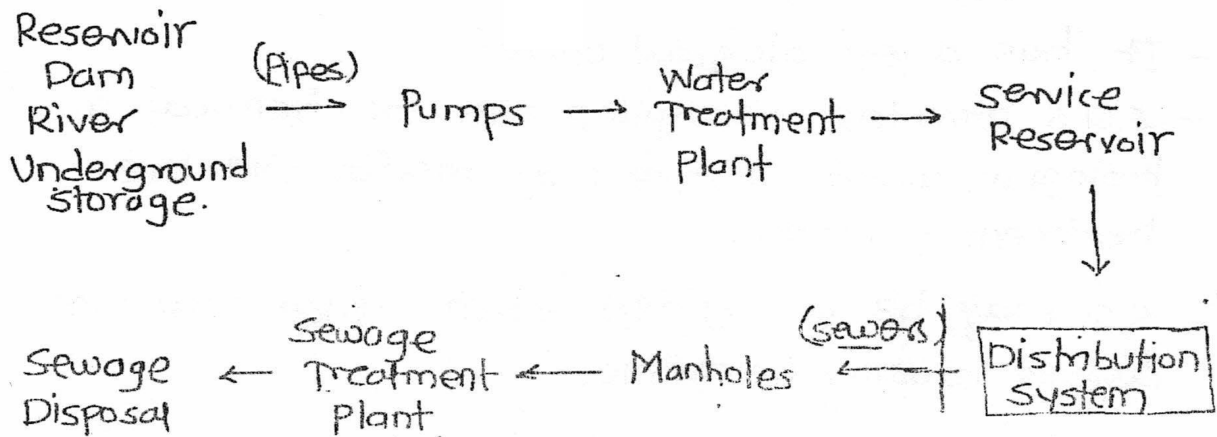 Reservoir
Dam
River
Underground
storage.
(Pipes)
Pumps
Water
Treatment
Plant
Service
Reservoir
Distribution
System
(sewers)
Manholes
Sewage
Treatment
plant
Sewage
Disposal